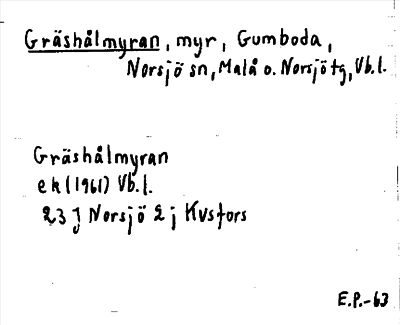 Gräshålmyran, myr, Gumboda,
Norsjö sn, Malå o. Norsjö tg, Vb.l.
Gräshålmyran
ek (1961) Vb.l.
23 J Norsjö 2 j Kvsfors
E.P.-63